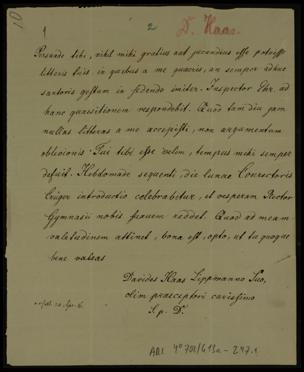 10
1
2
D. Haas
Persuade tibi, nihil mihi gratius aut jucundius esse potuisse
litteris tuis in quibus a me quaeris, an semper adhuc
sartoris gestum in sedendo imiter. Inspector Ehr. ad
hanc quaestionem respondebit. Quod tam diu jam
nullas litteras a me accepisti, non argumentum
oblivionis Tui tibi esse velim, tempus mihi semper
defuit. Hebdomade sequenti die lunae Conrectoris
Krüger introductio celebrabitur, et vesperam Rector
Gymnasii nobis reddet. Quod ad meam
valetudinem attinet, bona est, opto, ut tu quoque
bene valeas
Davides Haas Lippmanno Suo,
olim praeceptori carissimo
S. p. D.
20 Apr.
ARI 4° 701/413a-247.1